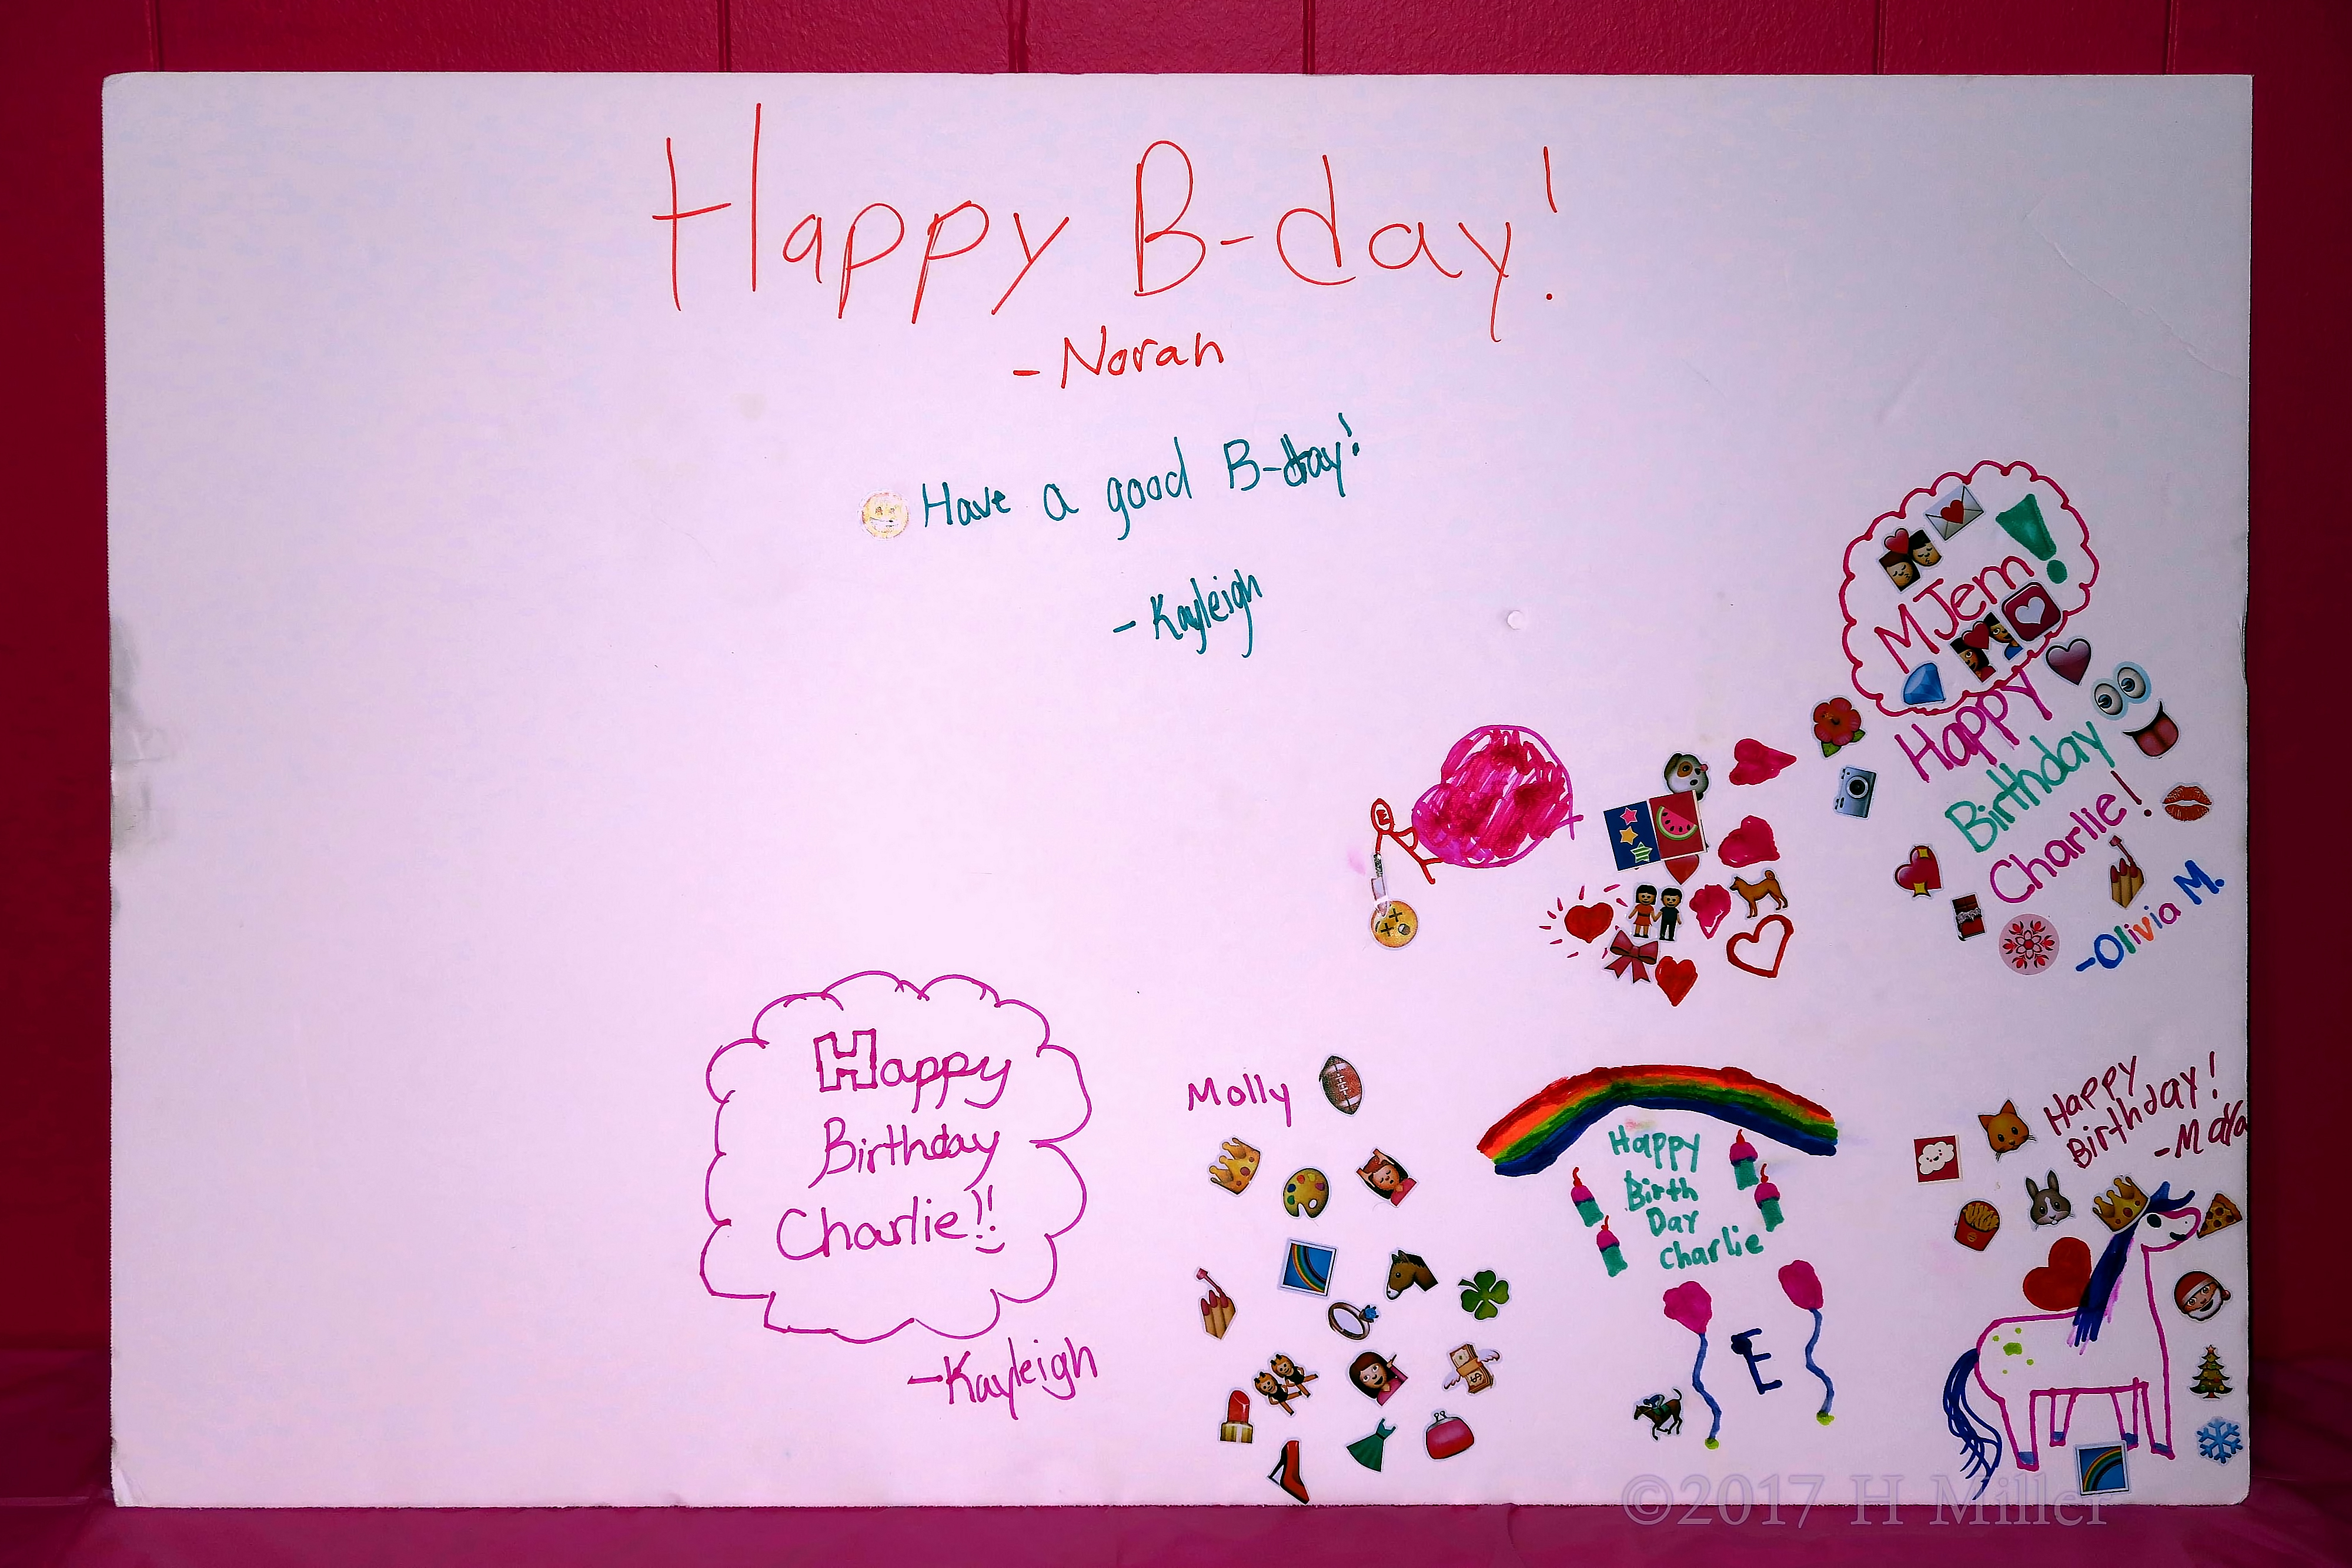 Happy B-day!
-Norah
Have a good B-day!
-Kayleigh
MJem!
Happy
Birthday
Charlie!
-Olivia M.
E
Happy
Birthday
Charlie!!
-Kayleigh
Molly
Happy
Birth
Day
Charlie
E
Happy
Birthday!
©2017 H Miller